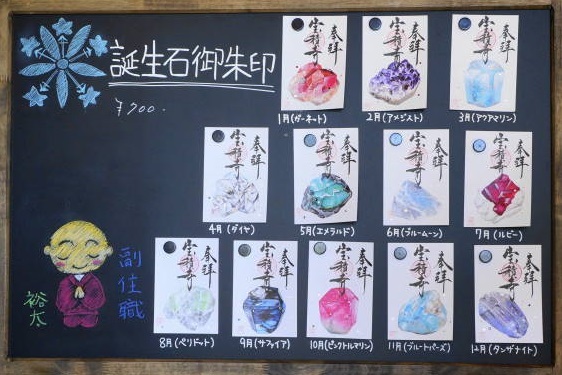 誕生石御朱印
¥700.
奉拝 宝積寺
奉拝 宝積寺
奉拝 宝積寺
1月(ガーネット)
2月(アメジスト)
3月(アクアマリン)
奉拝 宝積寺
奉拝 宝積寺
奉拝 宝積寺
奉拝 宝積寺
4月(ダイヤ)
5月(エメラルド)
6月(ブルームーン)
7月(ルビー)
副住職
裕太
奉拝 宝積寺
奉拝 宝積寺
奉拝 宝積寺
奉拝 宝積寺
奉拝 宝積寺
8月(ペリドット)
9月(サファイア)
10月(ピンクトルマリン)
11月(ブルートパーズ)
12月(タンザナイト)